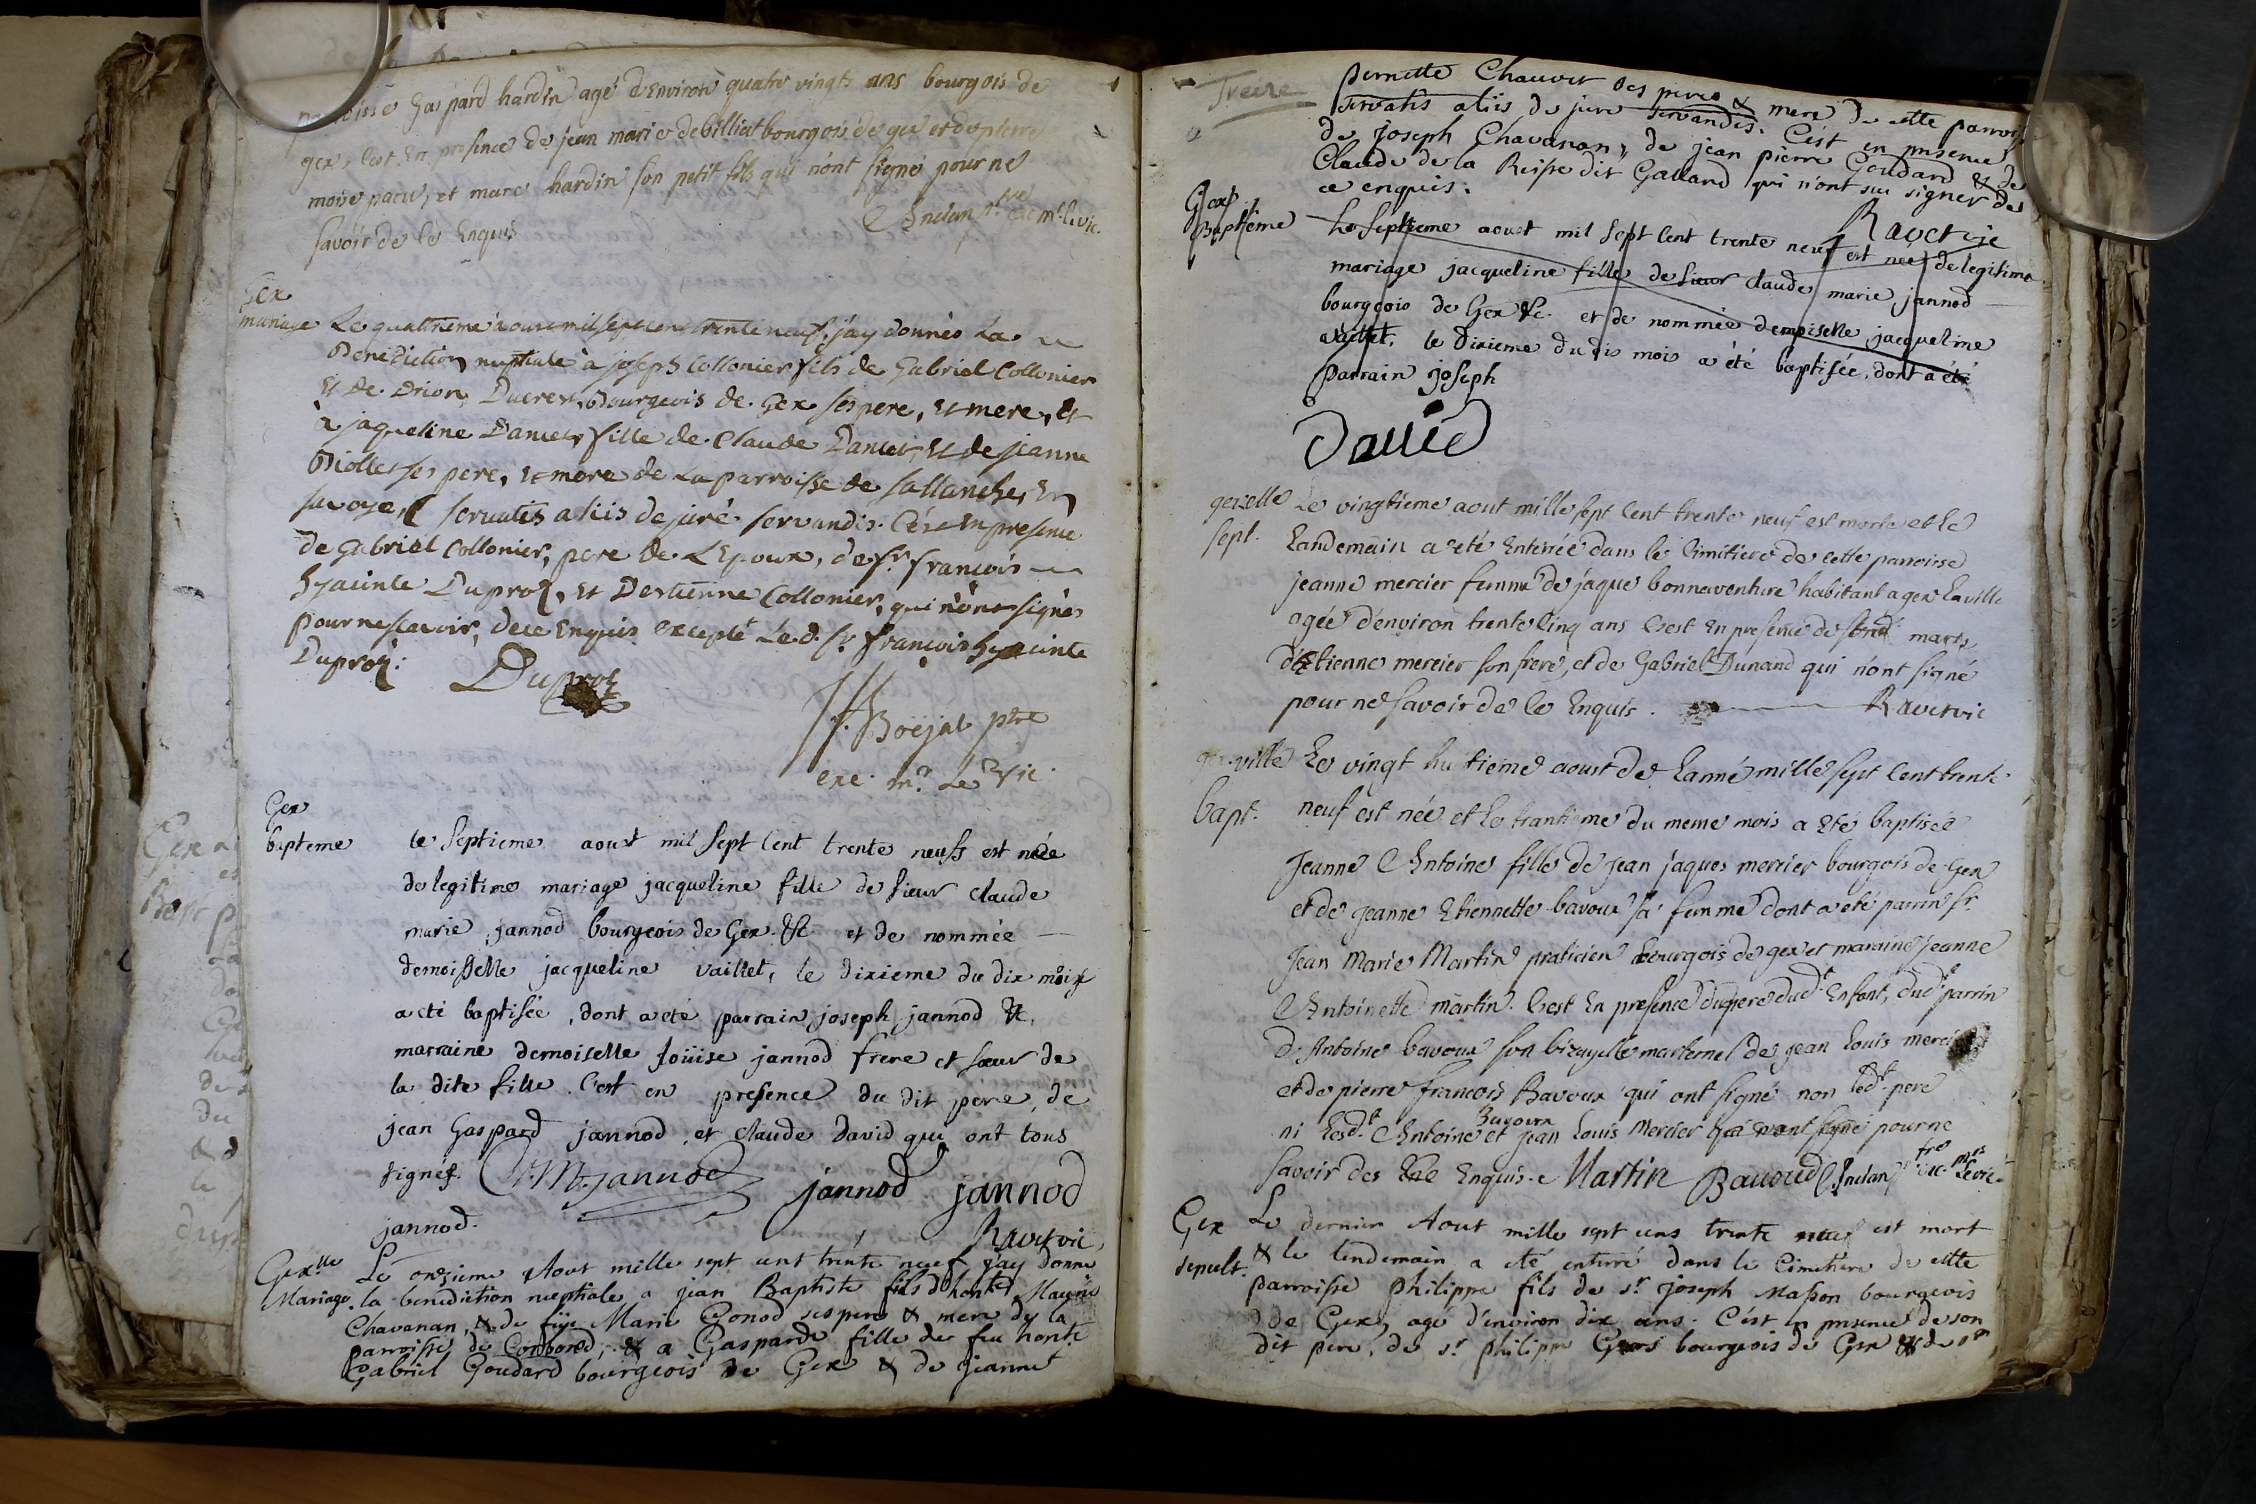 parroisse Gaspard hardin agé d'Environ quatre vingts ans bourgois de
gex, C'est En presence de jean marie de billiat bourgois de gex et de pierre
moise pacu, et marc hardin son petit fils qui n'ont signé pour ne
savoir de ce Enquis
Gex
mariage Le quatrieme aoust mil sept cent trente neuf, j'ay donnéo La
Benediction nuptiale à joseph Collonier fils de Gabriel Collonier
Et de Drion Ducret, Bourgeois de Gex ses pere, Et mere, Et
à jaqueline Dancet, fille de Claude Dancet, Et de jeanne
Biolle ses pere, Et mere de La parroisse de sallanche, En
savoye, servatis aliis de juré servandis. C'est En presence
de Gabriel Collonier, pere de L'Epoux, de sr. francois
hyacinte Duproz, Et D'estienne Collonier, qui n'ont signés
pour ne scavoir, de ce Enquis excepté Le d. sr. francois hyacinte
Duproz:
Duproz
J. Boëjat ptre
exc. mr. Le Vic.
Gex
bapteme le septieme aoust mil sept Cent trente neufs est née
de legitime mariage jacqueline fille de sieur claude
marie jannod bourgeois de Gex. &c et de nommée
demoisselle jacqueline vaillet, le dixieme du dix mois
a eté baptisée, dont a eté parrain joseph jannod &c,
marraine demoiselle Joüise jannod frere et sœur de
la dite fille. C'est en presence du dit pere, de
jean Gaspard jannod, et claude David qui ont tous
signés. C.M. jannod jannod jannod
jannod. Ravet vic,
Gexlle Le onzieme Aout mille sept cent trente neuf j'ay donne
Mariage. la benediction nuptiale a jean Baptiste fils d'honte Maurie
Chavanan, & de füe Marie Gonod ses pere & mere de la
parroisse de Conbord, & a Gasparde fille de feu honte
Gabriel Goudard bourgeois de Gex & de Jeanne
Treize
pernette Chauvet ses peres & mere de cette parroisse
servatis aliis de jure servandis. C'est en presence
de Joseph Chavanan, de jean pierre Goudard & de
Claude de la Reisse dit Galland qui n'ont sus signer de
ce enquis.
Ravet vic
Gex
Baptême Le septieme aoust mil sept Cent trente neuf est née de legitime
mariage jacqueline fille de sieur claude marie jannod
bourgeois de Gex &c. et de nommée demoiselle jacqueline
vaillet, le dixieme du dis mois a été baptisée, dont a été
parrain joseph
David
gexelle Le vingtieme aout mille sept Cent trente neuf est morte et le
sepl. Landemain a eté Enterrée dans le Cimitiere de cette parroisse
jeanne mercier femme de jaque bonnaventure habitant a gex la ville
agée d'environ trente Cinq ans C'est En presence de sond. mary,
d'Etienne mercier son frere, et de Gabriel Dunand qui n'ont signé
pour ne savoir de Ce Enquis. Ravet vic
gex ville Le vingt huitieme aoust de Lanné mille sept Cent trente
bapt. neuf est née et le trantieme du meme mois a eté baptisée
Jeanne Antoine fille de jean jaques mercier bourgois de Gex
et de jeanne Etiennette bavoux sa femme dont a eté parrin sr.
Jean Marie Martin praticien bourgois de gex et maraine jeanne
Antoinette martin. C'est En presence du pere dud. Enfant, dud. parrin
d'Antoine bavoux son bizayelle marternel de jean louis mercier
et de pierre francois Bavoux qui ont signé non led. pere
ni lesd. Antoine Bavoux et jean louis Mercier qui n'ont signé pour ne
savoir des Ce Enquis. Martin Bavoud
Gex Le dernier Aout mille sept cens trente neuf est mort
sepult. & le lendemain a eté enterré dans le Cimetiere de cette
parroisse philippe fils de sr. joseph Masson bourgeois
d de Gex, agé d'environ dix ans. C'est en presence de son
dit pere, de sr. philippe Gros bourgeois de Gex & de sr,